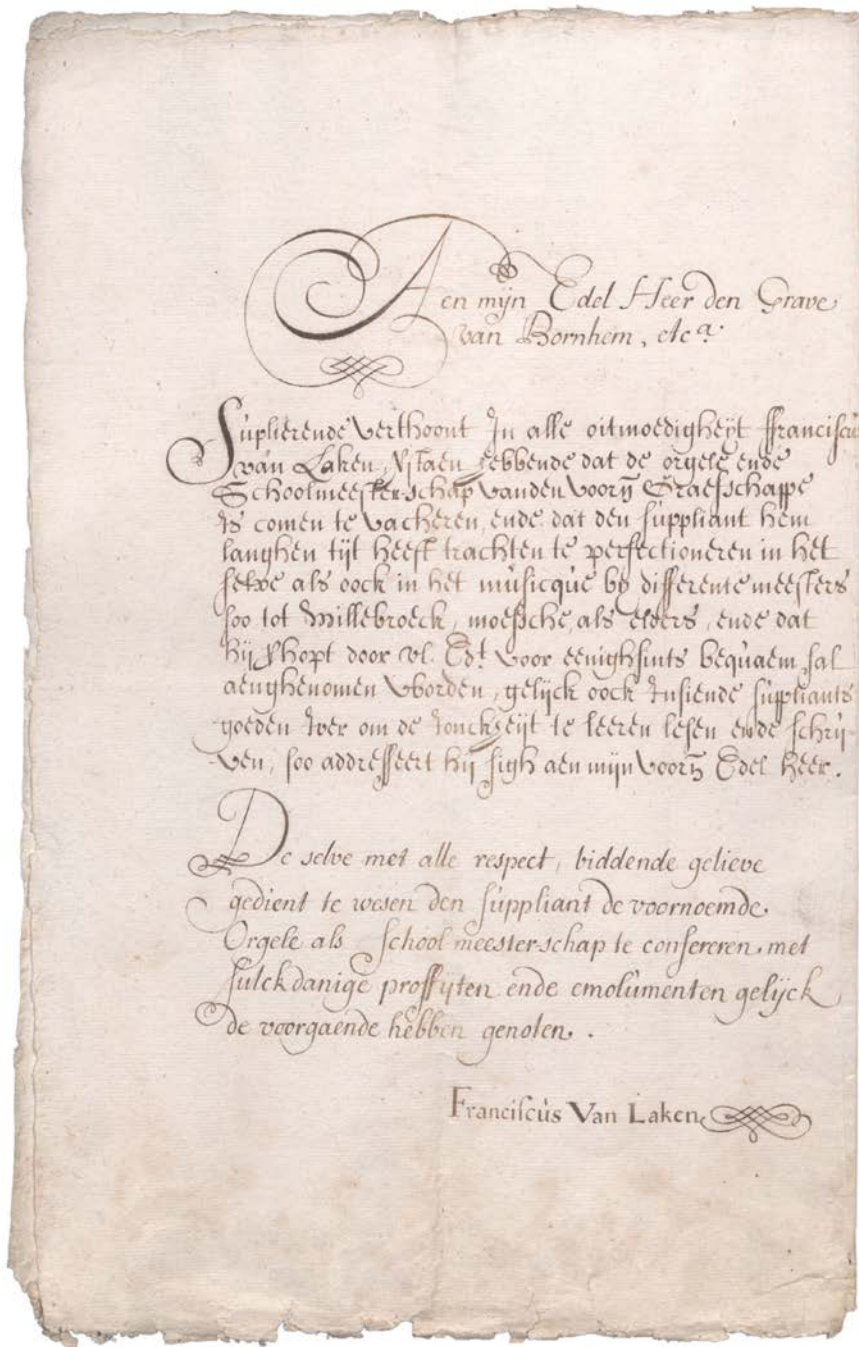 Aen mijn Edel Heer den Grave
van Bornhem, etca.
Suplierende verthoont In alle oitmoedigheijt ffranciscus
van Laken, verstaen hebbende dat de orgele ende
Schoolmeesterschap vanden voorñ Graefschappe
is comen te vacheren, ende dat den suppliant hem
langhen tijt heeft trachten te perfectioneren in het
selve als oock in het musicque by differente meesters
soo tot Willebroeck, moessche, als elders, ende dat
hij hopt door vl. Edt. voor eenighsints bequaem sal
aenghenomen worden, gelijck oock Insiende suppliants
goeden Iver om de Jonckheijt te leeren lesen ende schrij-
-ven, soo addresseert hij sigh aen mijn voorñ Edel heer.
De selve met alle respect, biddende gelieve
gedient te wesen den suppliant de voornoemde
Orgele als schoolmeester-schap te confereren met
sulckdanige proffijten ende emolumenten gelijck
de voorgaende hebben genoten.
Franciscus Van Laken